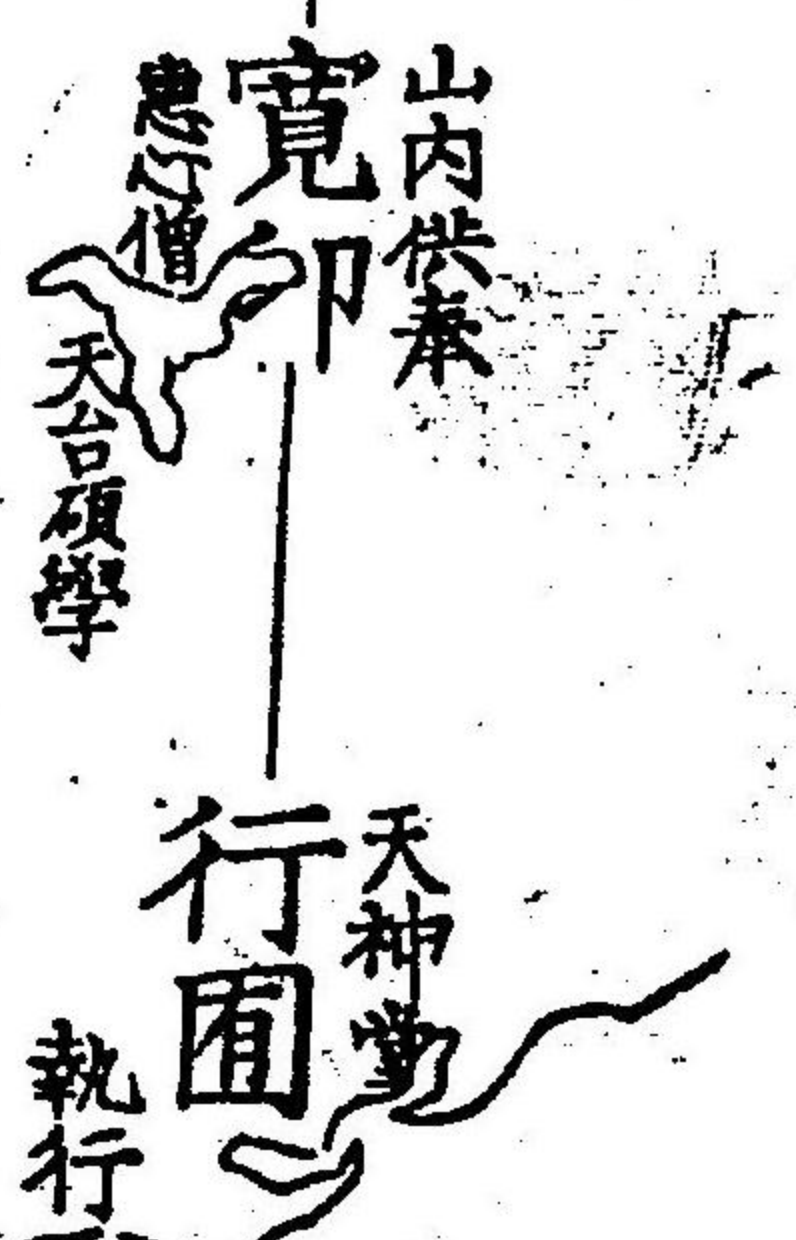 山内供奉
寛印
惠心僧
天台碩學
天神堂
行囿
執行